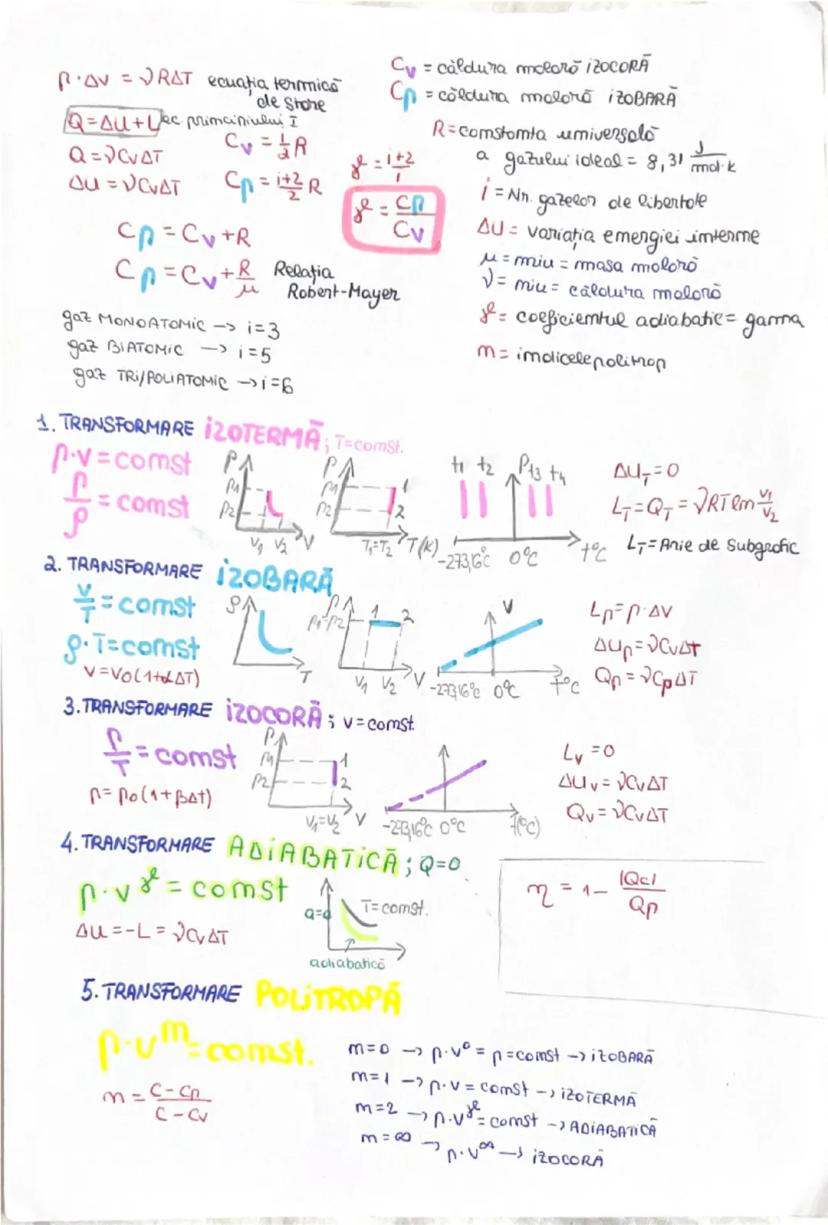 p·ΔV = νRΔT ecuația termică
de stare
Q=ΔU+L ec principiului I
Q=νCvΔT
ΔU=νCvΔT
Cv = 1/2 R
Cp = i+2/2 R
γ = i+2/i
γ = Cp/Cv
Cp = Cv+R
Cp = Cv+R/μ Relația
Robert-Mayer
gaz MONOATOMIC -> i=3
gaz BIATOMIC -> i=5
gaz TRI/POLIATOMIC -> i=6
Cv = căldura molară IZOCORĂ
Cp = căldura molară IZOBARĂ
R=constanta universală
a gazului ideal = 8,31 J/mol·k
i = Nr. gazelor de libertate
ΔU = variația energiei interne
μ = miu = masa molară
ν = miu = căldura molară
γ = coeficientul adiabatic = gamma
n = indicele politrop
1. TRANSFORMARE IZOTERMĂ; T=const.
p·v = const
p/ρ = const
P P1 P2 V1 V2 V
P P1 P2 1 2 T1=T2 T(K)
t1 t2 P t3 t4 -273,16°C 0°C t°C
ΔUT=0
LT=QT=νRT ln V1/V2
LT=Arie de subgrafic
2. TRANSFORMARE IZOBARĂ
V/T = const
ρ·T = const
V=V0(1+αΔT)
ρ T
P P1=P2 1 2 V1 V2 V
V -273,16°C 0°C t°C
Lp=p·ΔV
ΔUp=νCvΔt
Qp=νCpΔT
3. TRANSFORMARE IZOCORĂ; v=const.
P/T = const
p=p0(1+βΔt)
P P1 P2 1 2 V1=V2 V
-273,16°C 0°C t(°C)
Lv=0
ΔUv=νCvΔT
Qv=νCvΔT
4. TRANSFORMARE ADIABATICĂ; Q=0
p·v^γ = const
ΔU=-L=νCvΔT
Q=0 T=const.
adiabatică
η = 1- |Qc|/Qp
5. TRANSFORMARE POLITROPĂ
p·v^n = const.
n = C-Cp/C-Cv
n=0 -> p·v^0 = p=const -> IZOBARĂ
n=1 -> p·v = const -> IZOTERMĂ
n=2 -> p·v^γ = const -> ADIABATICĂ
n=∞ -> p·v^∞ -> IZOCORĂ